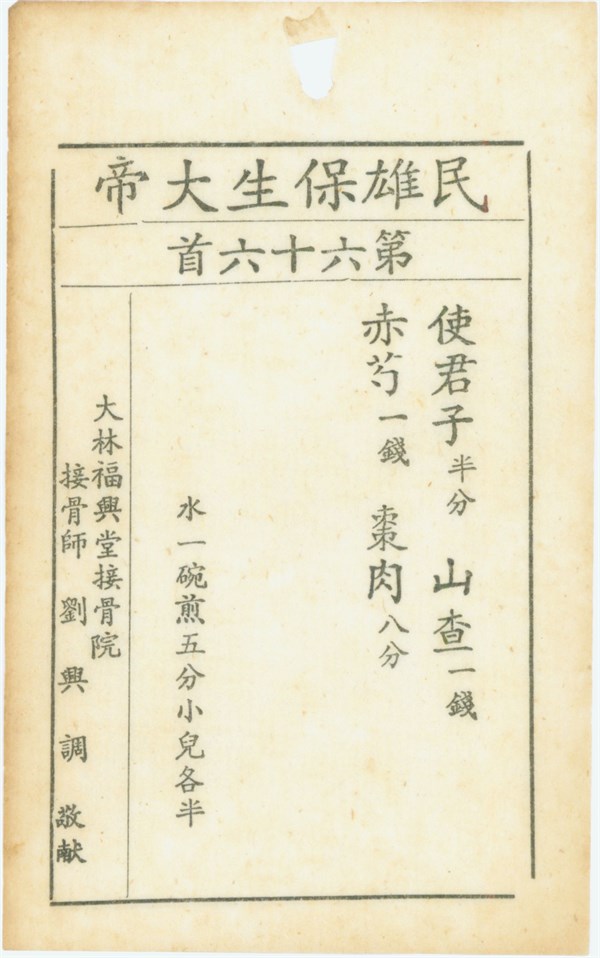 民雄保生大帝
第六十六首
使君子半分　山查一錢
赤芍一錢　棗肉八分
水一碗煎五分小兒各半
大林福興堂接骨院
接骨師　劉興調　敬献